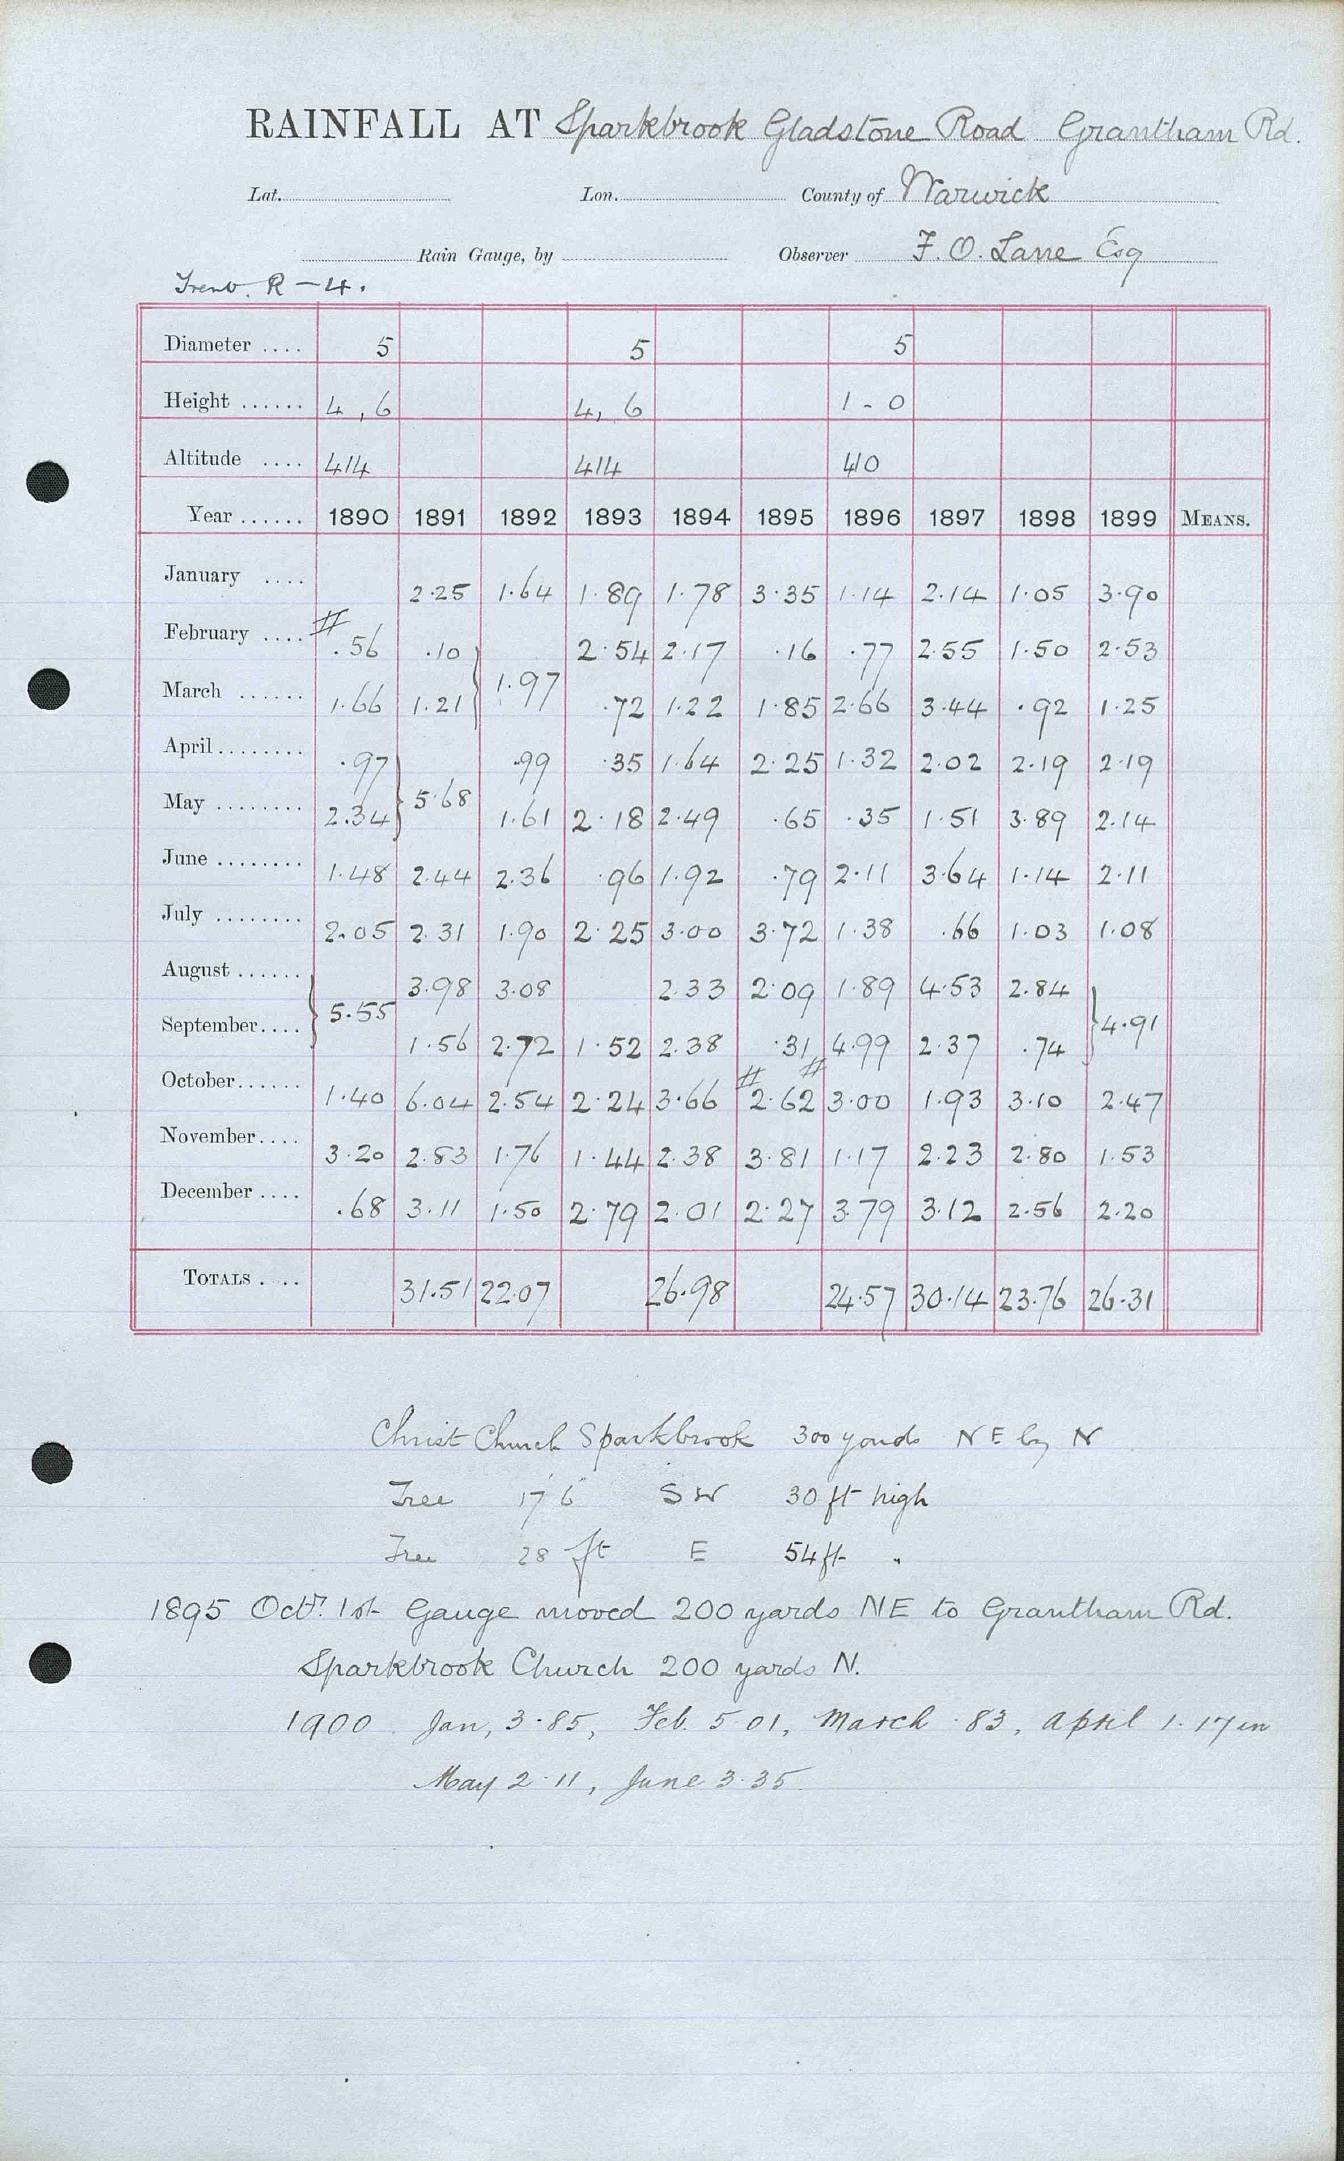 RAINFALL AT Sparkbrook Gladstone Road Grantham Rd.
Lat. Lon. County of Warwick
Rain Gauge, by Observer F. O. Lane Esq
Trent. R - 4.
Diameter .... 5 5 5
Height ...... 4, 6 4, 6 1 - 0
Altitude .... 414 414 410
Year ...... 1890 1891 1892 1893 1894 1895 1896 1897 1898 1899 MEANS.
January .... 2.25 1.64 1.89 1.78 3.35 1.14 2.14 1.05 3.90
February .... # .56 .10 2.54 2.17 .16 .77 2.55 1.50 2.53
} 1.97
March ...... 1.66 1.21 .72 1.22 1.85 2.66 3.44 .92 1.25
April ........ .97 .99 .35 1.64 2.25 1.32 2.02 2.19 2.19
} 5.68
May ........ 2.34 1.61 2.18 2.49 .65 .35 1.51 3.89 2.14
June ........ 1.48 2.44 2.36 .96 1.92 .79 2.11 3.64 1.14 2.11
July ........ 2.05 2.31 1.90 2.25 3.00 3.72 1.38 .66 1.03 1.08
August ...... 3.98 3.08 2.33 2.09 1.89 4.53 2.84
} 5.55 } 4.91
September .... 1.56 2.72 1.52 2.38 .31 4.99 2.37 .74
October ...... 1.40 6.04 2.54 2.24 3.66 # 2.62 # 3.00 1.93 3.10 2.47
November .... 3.20 2.83 1.76 1.44 2.38 3.81 1.17 2.23 2.80 1.53
December .... .68 3.11 1.50 2.79 2.01 2.27 3.79 3.12 2.56 2.20
TOTALS .... 31.51 22.07 26.98 24.57 30.14 23.76 26.31
Christ Church Sparkbrook 300 yards N E by N
Tree 17' 6" S W 30 ft high
Tree 28 ft E 54 ft "
1895 Octr. 1st Gauge moved 200 yards NE to Grantham Rd.
Sparkbrook Church 200 yards N.
1900. Jan, 3.85, Feb. 5.01, March .83, April 1.17 in
May 2.11, June 3.35.